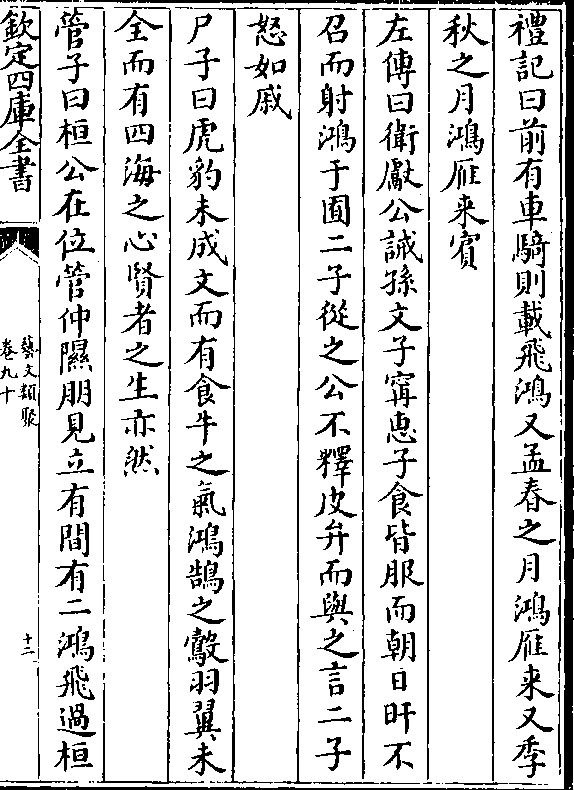 禮記曰前有車騎則載飛鴻又孟春之月鴻雁来又季
秋之月鴻雁来賓
左傳曰衛獻公誡孫文子寗惠子食皆服而朝日旰不
召而射鴻于囿二子從之公不釋皮弁而與之言二子
怒如戚
尸子曰虎豹未成文而有食牛之氣鴻鵠之鷇羽翼未
全而有四海之心賢者之生亦然
管子曰桓公在位管仲隰朋見立有間有二鴻飛過桓
欽定四庫全書
藝文類聚
卷九十
十二